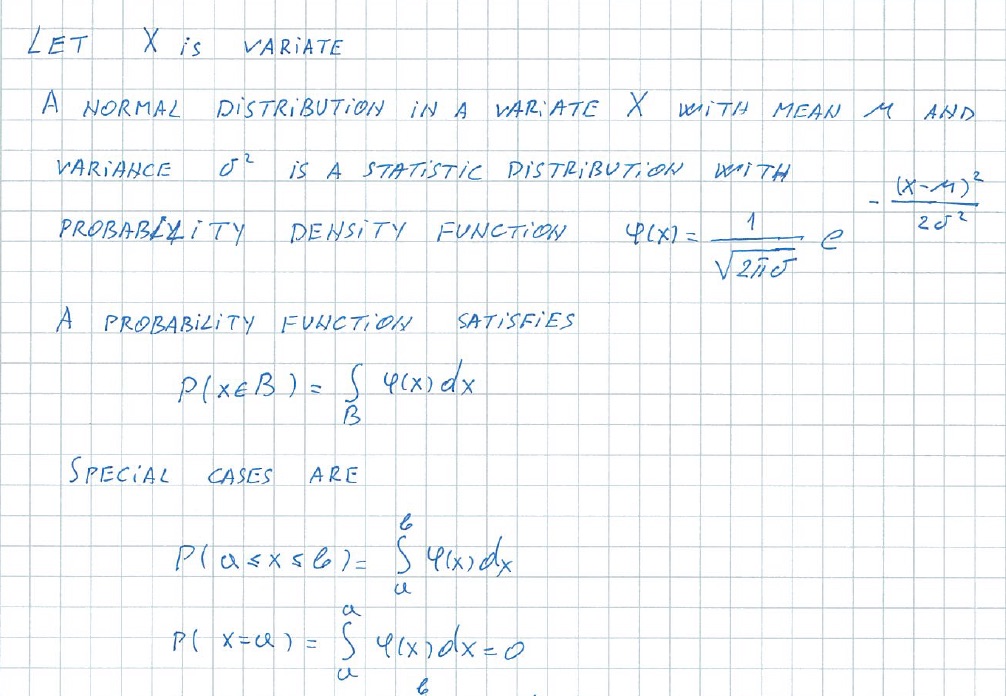 LET X is VARIATE
A NORMAL DISTRIBUTION IN A VARIATE X WITH MEAN μ AND
VARIANCE σ² IS A STATISTIC DISTRIBUTION WITH
PROBABILITY DENSITY FUNCTION φ(x) = 1/√2πσ e^-(x-μ)²/2σ²
A PROBABILITY FUNCTION SATISFIES
P(x∈B) = ∫_B φ(x)dx
SPECIAL CASES ARE
P(a≤x≤b) = ∫_a^b φ(x)dx
P(x=a) = ∫_a^a φ(x)dx=0
b